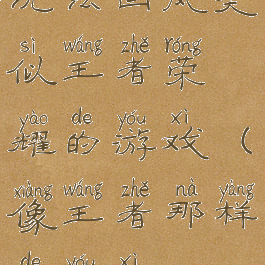 sì wáng zhě róng
似王者荣
yào de yóu xì
耀的游戏(
xiàng wáng zhě nà yàng
像王者那样
de yóu xì